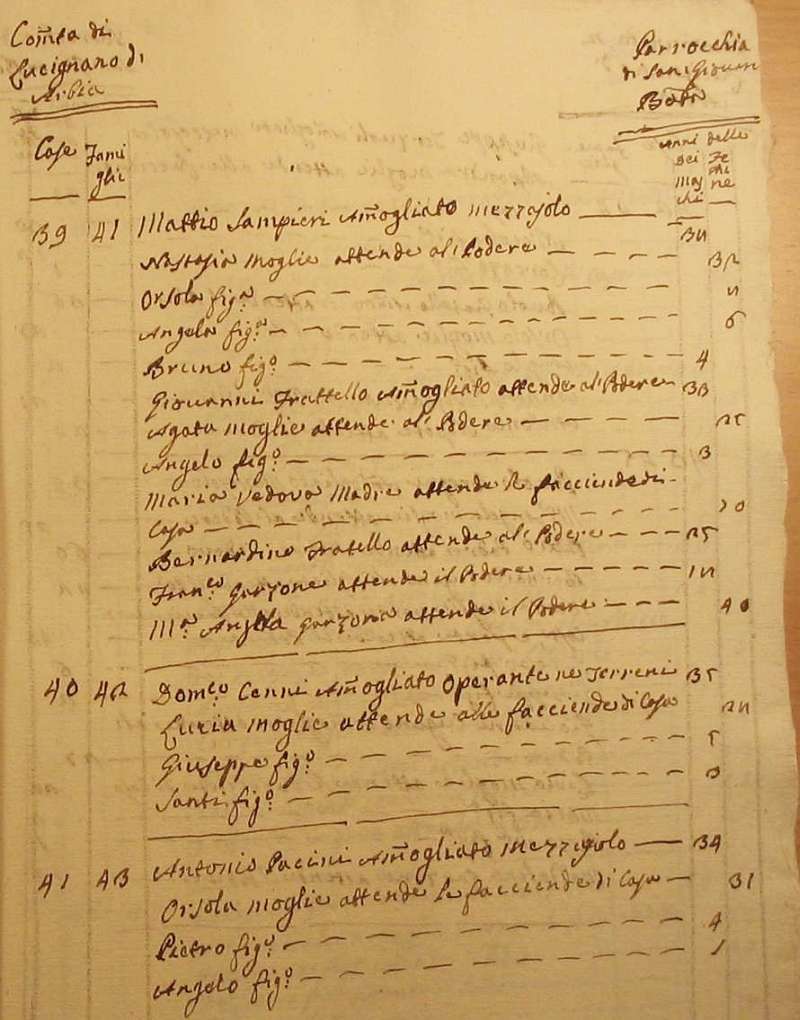 Com̃ta di
Lucignano di
Arbia
Parrocchia
di San Giovan
Batta
Case
Fami
glie
Anni
dei
mas
chi
delle
Fe
mi
ne
39 41 Mattio Sampieri Am̃ogliato mezzajolo
Nastasia moglie attende al Podere 32
Orsola figa.
Angela figa. 6
Bruno figo. 4
Giovanni Frattello Am̃ogliato attende al Podere 33
Agata moglie attende al Podere 25
Angelo figo. 3
Maria Vedova Madre attende le facciende di
Casa 70
Bernardino Fratello attende al Podere 25
Franco. garzone attende il Podere
Ma. Angela garzona attende il Podere 40
40 42 Domco. Cenni Am̃ogliato operante ne Terreni 35
Luzia moglie attende alle facciende di Casa
Giuseppe figo. 5
Santi figo. 3
41 43 Antonio Pacini Am̃ogliato mezzajolo 34
Orsola moglie attende le facciende di Casa 31
Pietro figo. 4
Angelo figo. 1